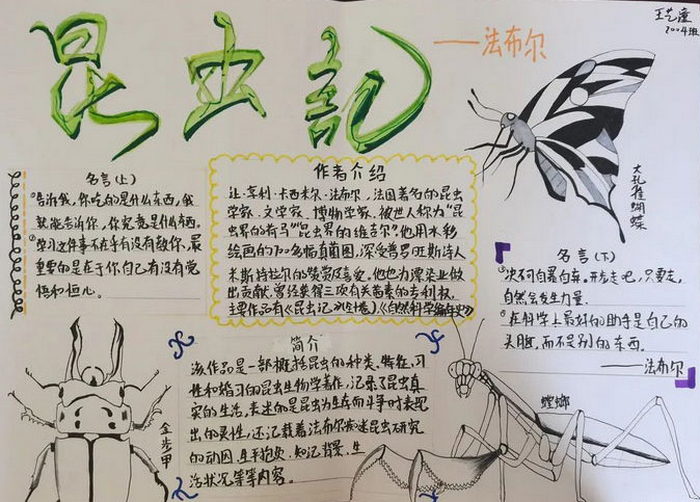 昆虫記
——法布尔
王艺潼
2004班
名言(上)
①告诉我,你吃的是什么东西,我
就能告诉你,你究竟是什么东西。
②学习这件事不在乎有没有人教你,最
重要的是在于你自己有没有觉
悟和恒心。
作者介绍
让·亨利·卡西米尔·法布尔,法国著名的昆虫
学家、文学家、博物学家,被世人称为"昆
虫界的荷马""昆虫界的维吉尔"他用水彩
绘画的700多幅真菌图,深受普罗旺斯诗人
米斯特拉尔的赞赏及喜爱。他也为漂染业做
出贡献,曾经获得三项有关茜素的专利权,
主要作品有《昆虫记》《自然科学编年史》
大孔雀蝴蝶
名言(下)
①决不可自暴自弃。开步走吧,只要走,
自然会发生力量.
②在科学上最好的助手是自己的
头脑,而不是别的东西。
——法布尔
简介
该作品是一部概括昆虫的种类、特征、习
性和婚习的昆虫生物学著作,记录了昆虫真
实的生活,表述的是昆虫为生存而斗争时表现
出的灵性,还记载着法布尔痴迷昆虫研究
的动因、生平抱负、知识背景、生
活状况等等内容。
金步甲
螳螂